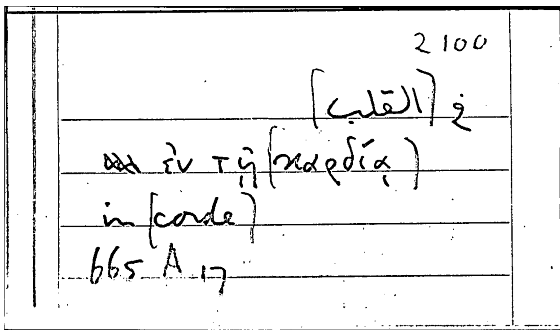 2100
في [القلب]
ἐν τῇ [καρδίᾳ]
in [corde]
665 A 17